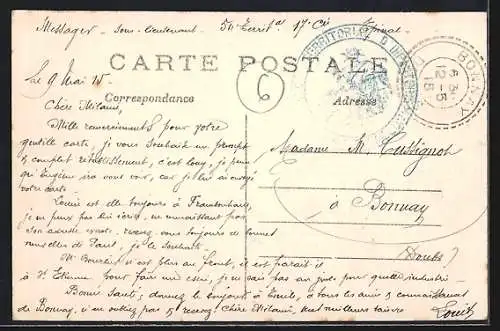 Messager - sous-lieutenant 5e Territal 17e Cie Epinal
TERRITORIAL D'INFANTERIE
BONNAY
12-5
15
CARTE POSTALE
Le 9 Mai 15
6
Correspondance
Adresse
Chère Mélanie,
Mille remerciements pour votre
gentille carte, je vous souhaite un prompt
& complet rétablissement, c'est long, je pense
qu'Eugène ira vous voir, car je lui ai envoyé
votre carte.
Madame M. Cussignot
à Bonnay
(Doubs)
Louise est elle toujours à
je ne puis pas lui écrire, ne connaissant pas
son adresse exacte, recevez vous toujours de bonnes
nouvelles de Paul, je le souhaite.
Mr est plus au front, il est parait il
à St Etienne pour je ne sais pas au juste pour quelle industrie
Bonne Santé, donnez le bonjour à Emile, à tous les amis & connaissances
de Bonnay, n'en oubliez pas & recevez Chère Mélanie, mes meilleurs baisers
Louis